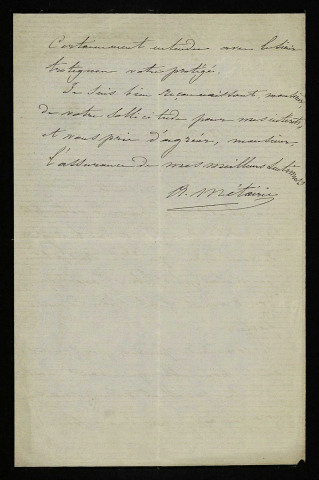 Certainement entendu avec le sieur
votre protégé.
Je suis bien reconnaissant monsieur,
de votre sollicitude pour mes intérêts,
et vous prie d'agréer, monsieur,
l'assurance de mes meilleurs sentiments
B. Métairie